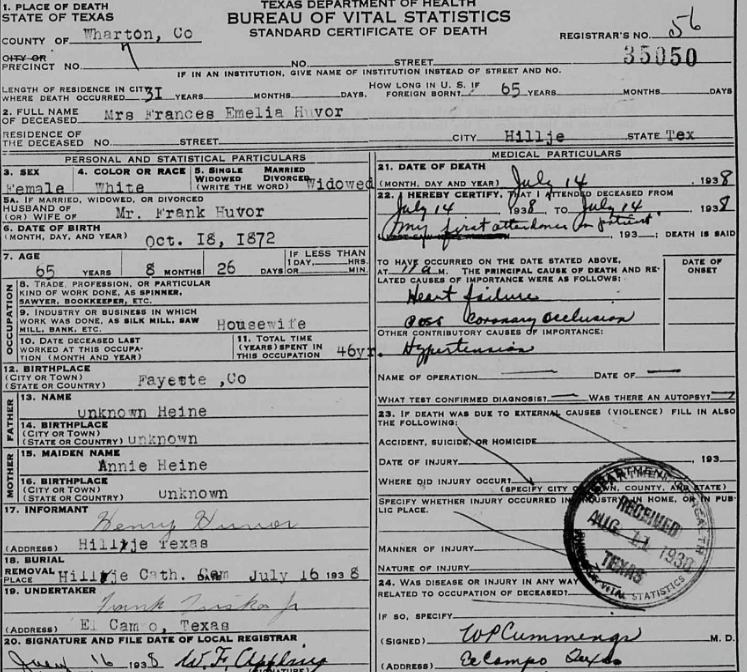 1. PLACE OF DEATH
STATE OF TEXAS
TEXAS DEPARTMENT OF HEALTH
BUREAU OF VITAL STATISTICS
STANDARD CERTIFICATE OF DEATH
COUNTY OF Wharton, Co
REGISTRAR'S NO. 56
35050
CITY OR
PRECINCT NO. 7 NO. STREET
IF IN AN INSTITUTION, GIVE NAME OF INSTITUTION INSTEAD OF STREET AND NO.
LENGTH OF RESIDENCE IN CITY
WHERE DEATH OCCURRED 3I YEARS MONTHS DAYS.
HOW LONG IN U. S. IF
FOREIGN BORN? 65 YEARS MONTHS DAYS
2. FULL NAME
OF DECEASED Mrs Frances Emelia Huvor
RESIDENCE OF
THE DECEASED NO. STREET CITY Hillje STATE Tex
PERSONAL AND STATISTICAL PARTICULARS
3. SEX
Female
4. COLOR OR RACE
White
5. SINGLE MARRIED
WIDOWED DIVORCED
(WRITE THE WORD) Widowed
5A. IF MARRIED, WIDOWED, OR DIVORCED
HUSBAND OF
(OR) WIFE OF Mr. Frank Huvor
6. DATE OF BIRTH
(MONTH, DAY, AND YEAR) Oct. I8, I872
7. AGE
65 YEARS 8 MONTHS 26 DAYS
IF LESS THAN
1 DAY, HRS.
OR MIN.
OCCUPATION
8. TRADE, PROFESSION, OR PARTICULAR
KIND OF WORK DONE, AS SPINNER,
SAWYER, BOOKKEEPER, ETC.
9. INDUSTRY OR BUSINESS IN WHICH
WORK WAS DONE, AS SILK MILL, SAW
MILL, BANK, ETC. Housewife
10. DATE DECEASED LAST
WORKED AT THIS OCCUPA-
TION (MONTH AND YEAR)
11. TOTAL TIME
(YEARS) SPENT IN
THIS OCCUPATION 46yr.
12. BIRTHPLACE
(CITY OR TOWN)
(STATE OR COUNTRY) Fayette ,Co
FATHER
13. NAME
unknown Heine
14. BIRTHPLACE
(CITY OR TOWN)
(STATE OR COUNTRY) unknown
MOTHER
15. MAIDEN NAME
Annie Heine
16. BIRTHPLACE
(CITY OR TOWN)
(STATE OR COUNTRY) unknown
17. INFORMANT
Henry Huvor
(ADDRESS) Hillje Texas
18. BURIAL
REMOVAL
PLACE Hillje Cath. Cem July I6 193 8
19. UNDERTAKER
Frank
(ADDRESS) El Campo, Texas
20. SIGNATURE AND FILE DATE OF LOCAL REGISTRAR
16 1938 W. F. Appling
MEDICAL PARTICULARS
21. DATE OF DEATH
(MONTH, DAY AND YEAR) July 14 , 1938
22. I HEREBY CERTIFY, THAT I ATTENDED DECEASED FROM
July 14 1938 TO July 14 1938
My first attendance on patient 193 ; DEATH IS SAID
TO HAVE OCCURRED ON THE DATE STATED ABOVE,
AT 11 a. M. THE PRINCIPAL CAUSE OF DEATH AND RE-
LATED CAUSES OF IMPORTANCE WERE AS FOLLOWS:
DATE OF
ONSET
Heart failure
Poss Coronary Occlusion
OTHER CONTRIBUTORY CAUSES OF IMPORTANCE:
Hypertension
NAME OF OPERATION DATE OF
WHAT TEST CONFIRMED DIAGNOSIS? WAS THERE AN AUTOPSY?
23. IF DEATH WAS DUE TO EXTERNAL CAUSES (VIOLENCE) FILL IN ALSO
THE FOLLOWING:
ACCIDENT, SUICIDE, OR HOMICIDE
DATE OF INJURY , 193
WHERE DID INJURY OCCUR?
(SPECIFY CITY OR TOWN, COUNTY, AND STATE)
SPECIFY WHETHER INJURY OCCURRED IN INDUSTRY, IN HOME, OR IN PUB-
LIC PLACE.
MANNER OF INJURY
NATURE OF INJURY
DEPARTMENT HEALTH
RECEIVED
AUG 11 1938
TEXAS
VITAL STATISTICS
24. WAS DISEASE OR INJURY IN ANY WAY
RELATED TO OCCUPATION OF DECEASED?
IF SO, SPECIFY
(SIGNED) WP Cummings M. D.
(ADDRESS) El Campo Texas